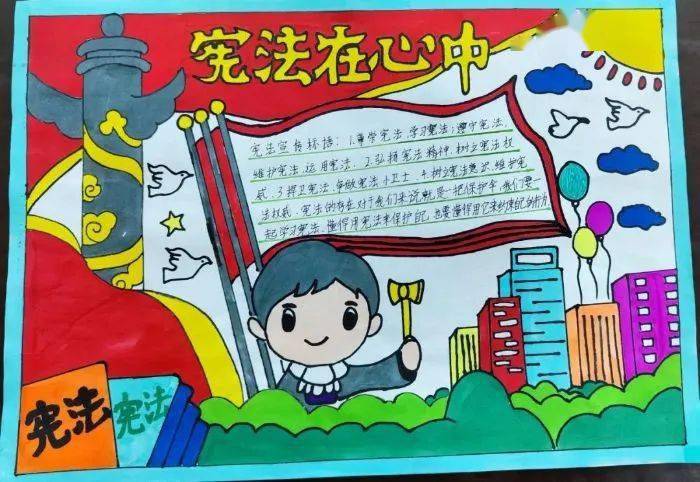 宪法在心中
宪法宣传标语：1.尊学宪法,学习宪法,遵守宪法,
维护宪法,运用宪法。2.弘扬宪法精神,树立宪法权
威。3.捍卫宪法,争做宪法小卫士。4.树立宪法意识,维护宪
法权威。宪法的存在对于我们来说就是一把保护伞,我们要一
起学习宪法,懂得用宪法来保护自己,也要懂得用它来约束自己的行为
宪法
宪法